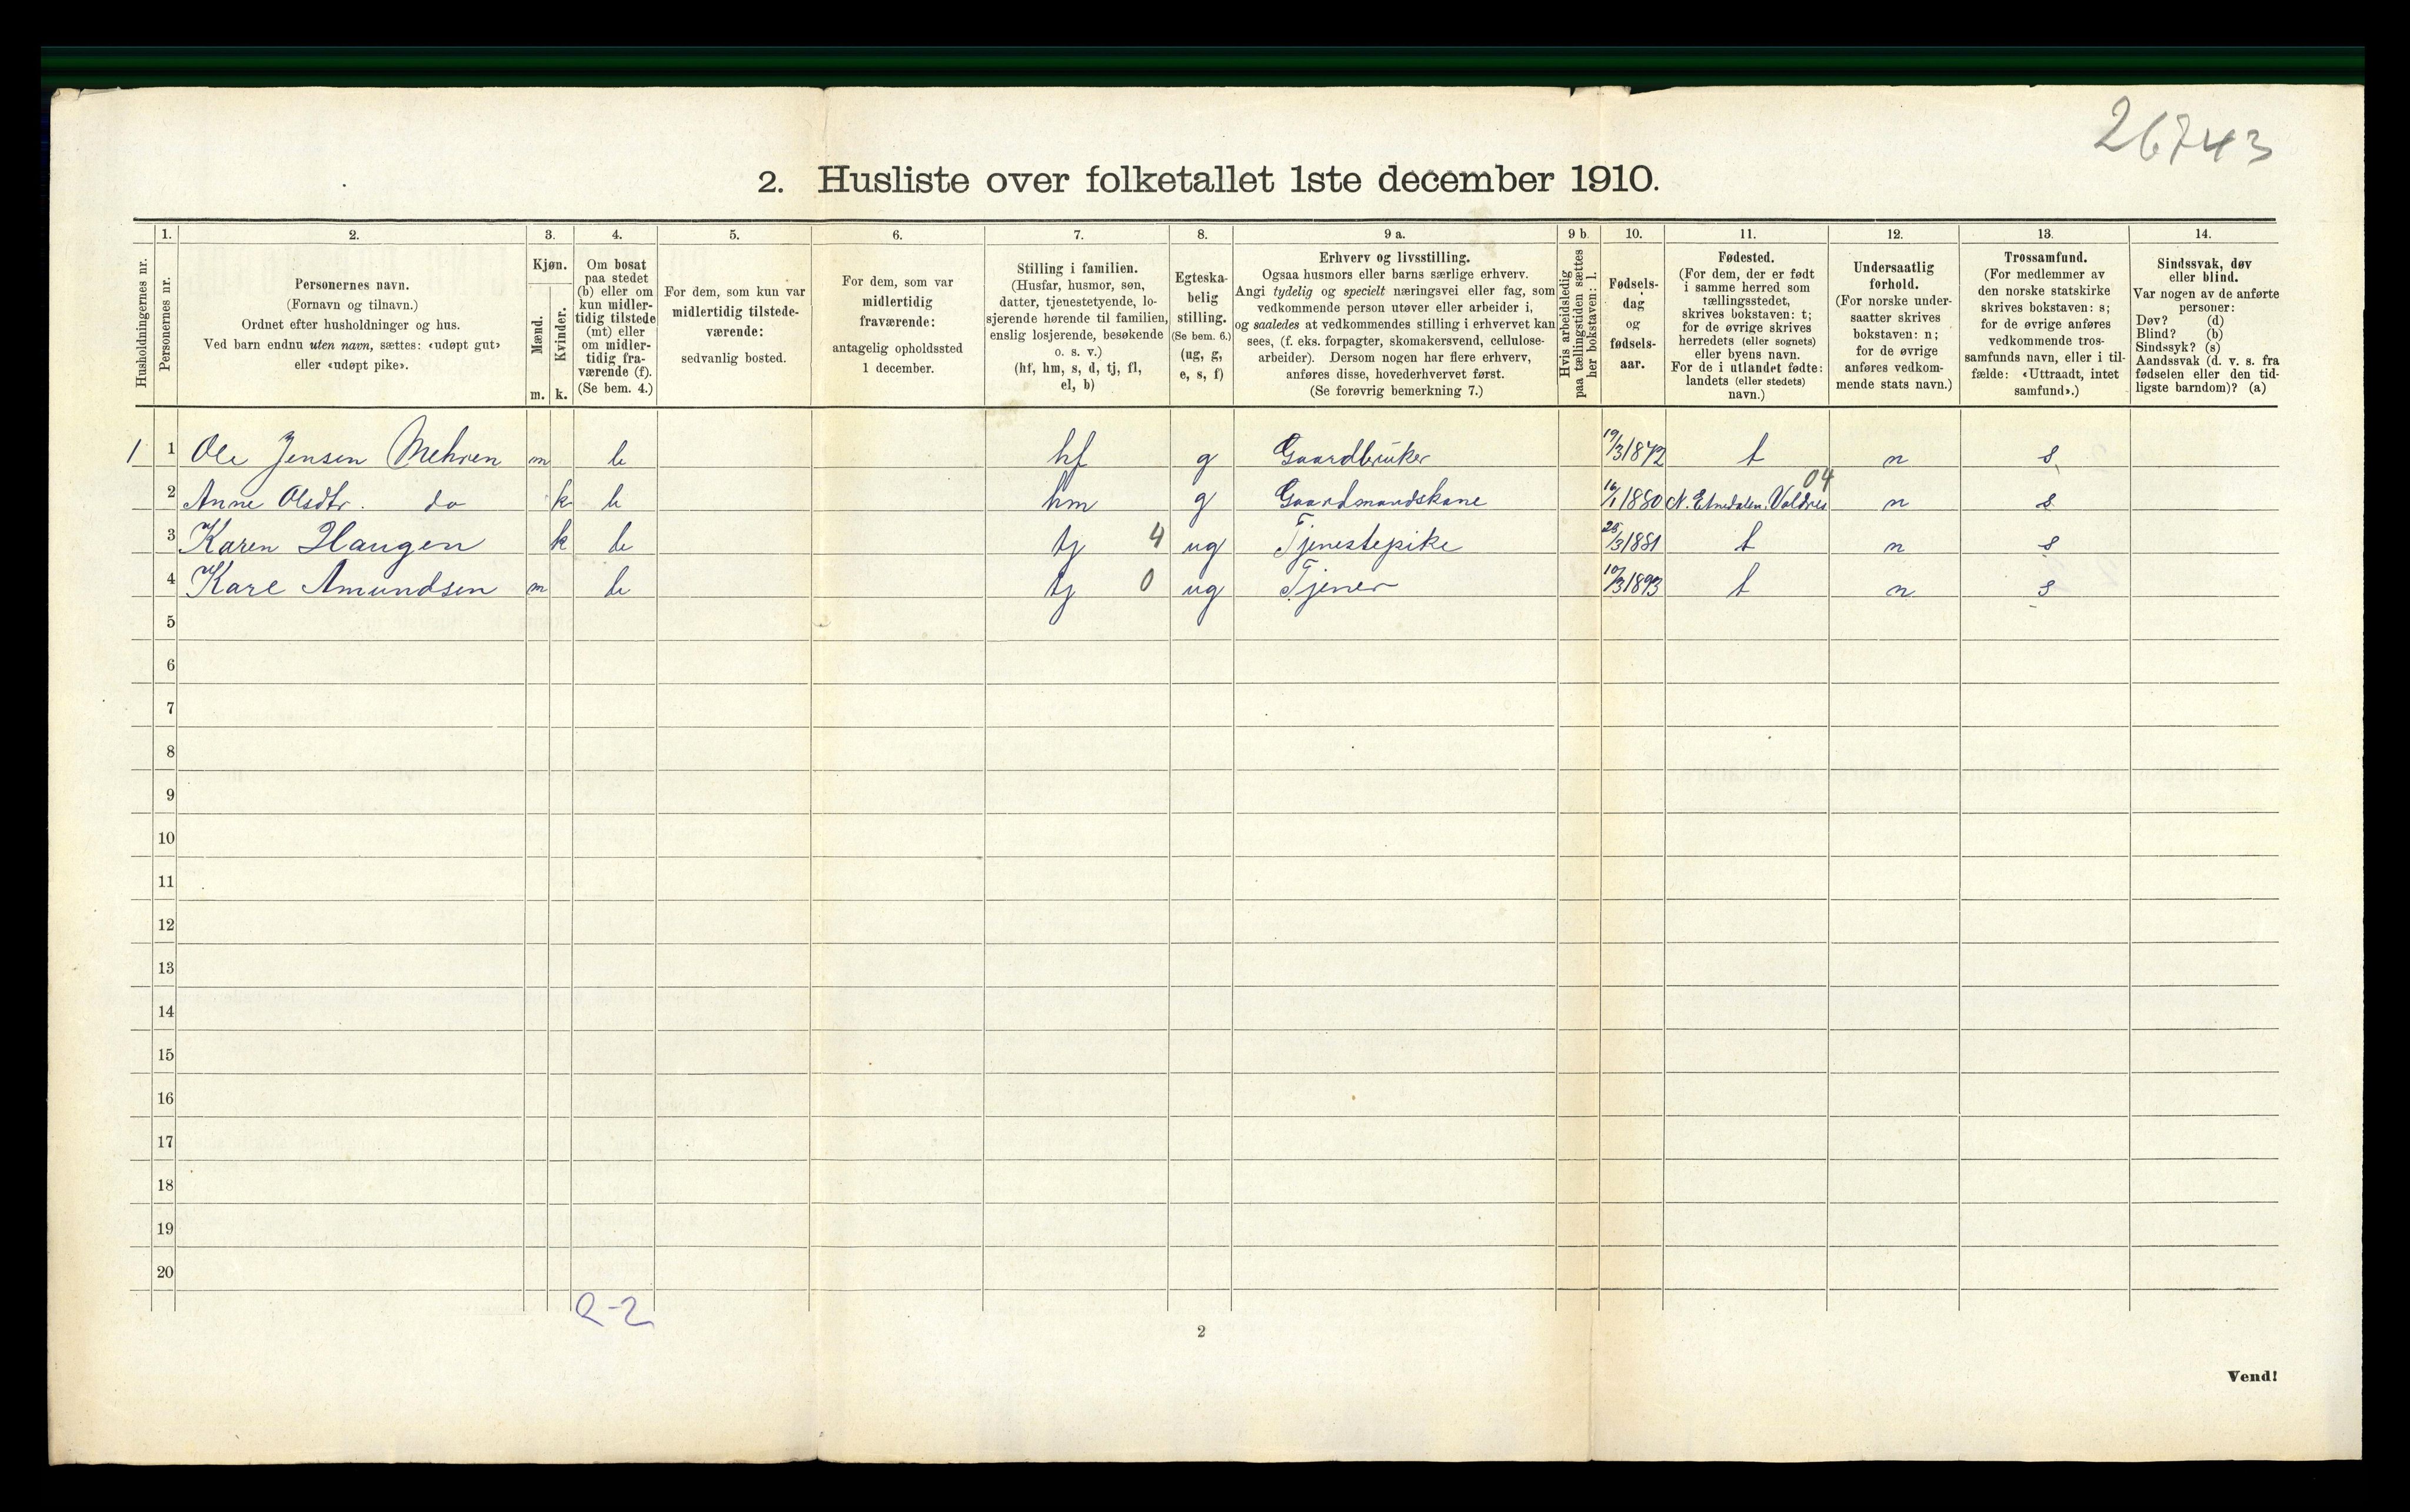 26743
2. Husliste over folketallet 1ste december 1910.
Husholdningernes nr.
1.
Personernes nr.
2.
Personernes navn.
(Fornavn og tilnavn.)
Ordnet efter husholdninger og hus.
Ved barn endnu uten navn, sættes: «udøpt gut»
eller «udøpt pike».
3.
Kjøn.
Mænd.
Kvinder.
m. k.
4.
Om bosat
paa stedet
(b) eller om
kun midler-
tidig tilstede
(mt) eller
om midler-
tidig fra-
værende (f).
(Se bem. 4.)
5.
For dem, som kun var
midlertidig tilstede-
værende:
sedvanlig bosted.
6.
For dem, som var
midlertidig
fraværende:
antagelig opholdssted
1 december.
7.
Stilling i familien.
(Husfar, husmor, søn,
datter, tjenestetyende, lo-
sjerende hørende til familien,
enslig losjerende, besøkende
o. s. v.)
(hf, hm, s, d, tj, fl,
el, b)
8.
Egteska-
belig
stilling.
(Se bem. 6.)
(ug, g,
e, s, f)
9 a.
Erhverv og livsstilling.
Ogsaa husmors eller barns særlige erhverv.
Angi tydelig og specielt næringsvei eller fag, som
vedkommende person utøver eller arbeider i,
og saaledes at vedkommendes stilling i erhvervet kan
sees, (f. eks. forpagter, skomakersvend, cellulose-
arbeider). Dersom nogen har flere erhverv,
anføres disse, hovederhvervet først.
(Se forøvrig bemerkning 7.)
9 b.
Hvis arbeidsledig
paa tællingstiden sættes
her bokstaven: l.
10.
Fødsels-
dag
og
fødsels-
aar.
11.
Fødested.
(For dem, der er født
i samme herred som
tællingsstedet,
skrives bokstaven: t;
for de øvrige skrives
herredets (eller sognets)
eller byens navn.
For de i utlandet fødte:
landets (eller stedets)
navn.)
12.
Undersaatlig
forhold.
(For norske under-
saatter skrives
bokstaven: n;
for de øvrige
anføres vedkom-
mende stats navn.)
13.
Trossamfund.
(For medlemmer av
den norske statskirke
skrives bokstaven: s;
for de øvrige anføres
vedkommende tros-
samfunds navn, eller i til-
fælde: «Uttraadt, intet
samfund».)
14.
Sindssvak, døv
eller blind.
Var nogen av de anførte
personer:
Døv? (d)
Blind? (b)
Sindssyk? (s)
Aandssvak (d. v. s. fra
fødselen eller den tid-
ligste barndom)? (a)
1 1 Ole Jensen Mehren m b hf g Gaardbruker 19/3 1872 t n s
04
2 Anne Olsdtr. do k b hm g Gaardmandskone 16/1 1880 N. Etnedalen. Valdres n s
3 Karen Haugen k b tj 4 ug Tjenestepike 28/3 1881 t n s
4 Karl Amundsen m b tj 0 ug Tjener 10/3 1893 t n s
5
6
7
8
9
10
11
12
13
14
15
16
17
18
19
20
2-2
2
Vend!